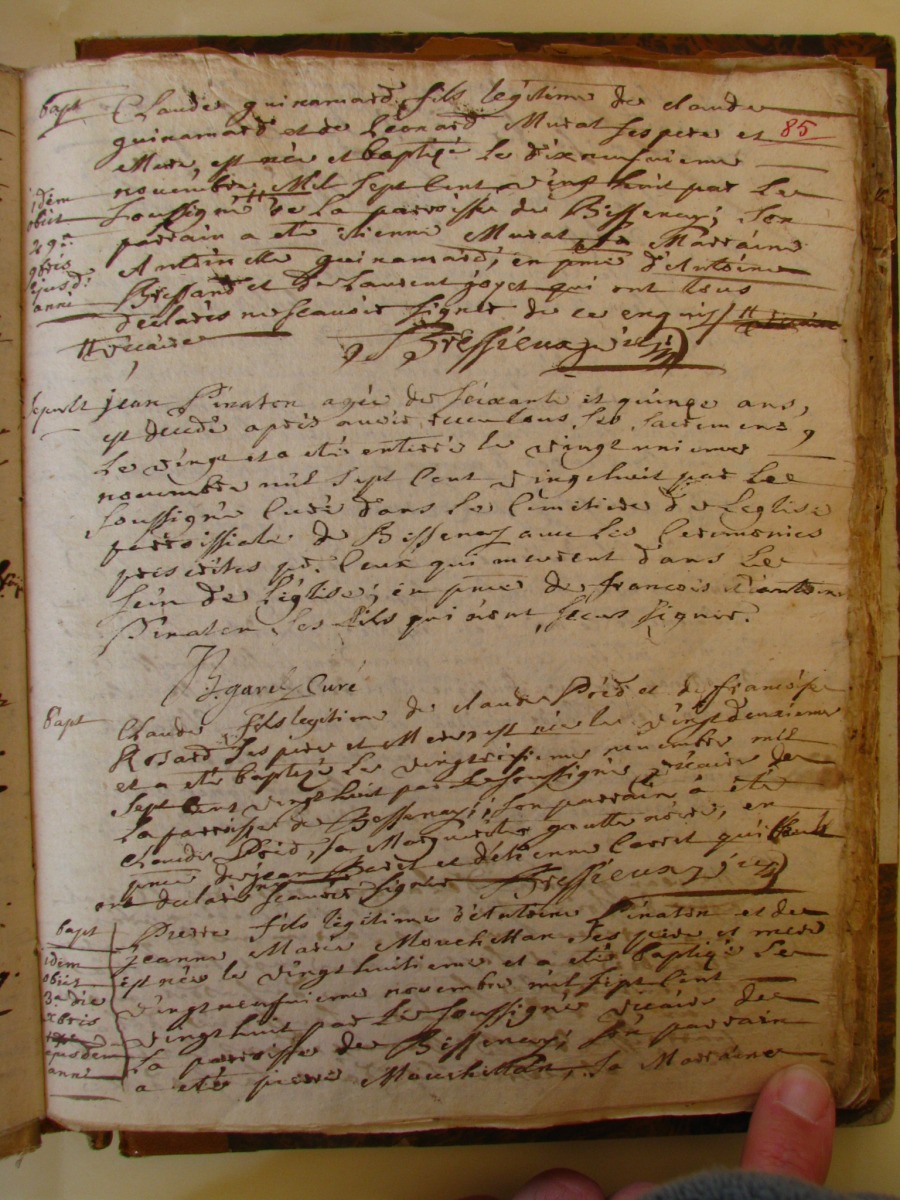 bapt
Claude guinamard fils legitime de claude
85
guinamard et de Leonard Murat ses pere et
Mere, est née et baptizé le dixneufuieme
novembre Mil sept cent vingt huit par le
idem
obiit
29a
9bris
ejusd.
anni
soussigné # de la parroisse de Bessenay; son
parrain a eté etienne Murat, sa Marraine
Antoinette guinamard, en pnce d'Antoine
Bressand et de Laurent joyet qui ont tous
declarés ne scauoir signer de ce enquis /
# vicaire
Bressieux vic
sepult
jean Pinaton agée de soixante et quinze ans,
est decedé apres auoir receu tous les sacremens
le vingt et a eté enterré le vingt unieme
novembre mil sept cent vingt huit par le
soussigné Curé dans le Cimitiere de Leglise
parroissiale de Bessenay auec les Ceremonies
prescrites pr. Ceux qui meurent dans le
sein de l'eglise; en pnce de francois
Pinaton ses fils qui n'ont sceus signer.
Bgarel Curé
bapt
Claude fils legitime de claude Poid et de francoise
Rosard ses pere et Mere est née le vingt deuxieme
et a eté baptizé le vingtroisieme nouembre mil
sept cent vingt huit par le soussigné vicaire de
la parroisse de Bessenay; son parrain a eté
claude Poid, sa Marguerite goutte noire, en
pnce de jean et d'etienne qui
ont declaré scauoir signer Bressieux vic
bapt
Pierre fils legitime d'Antoine Pinaton et de
jeanne Marie Mouchettan ses pere et mere
idem
obiit
3a die
xbris
ejusdem
anni
est née le vingt huitieme et a eté baptizé le
vingt neufuieme novembre mil sept cent
vingt huit par le soussigné vicaire de
la parroisse de Bessenay; son parrain
a eté pierre Mouchettan, sa Marraine